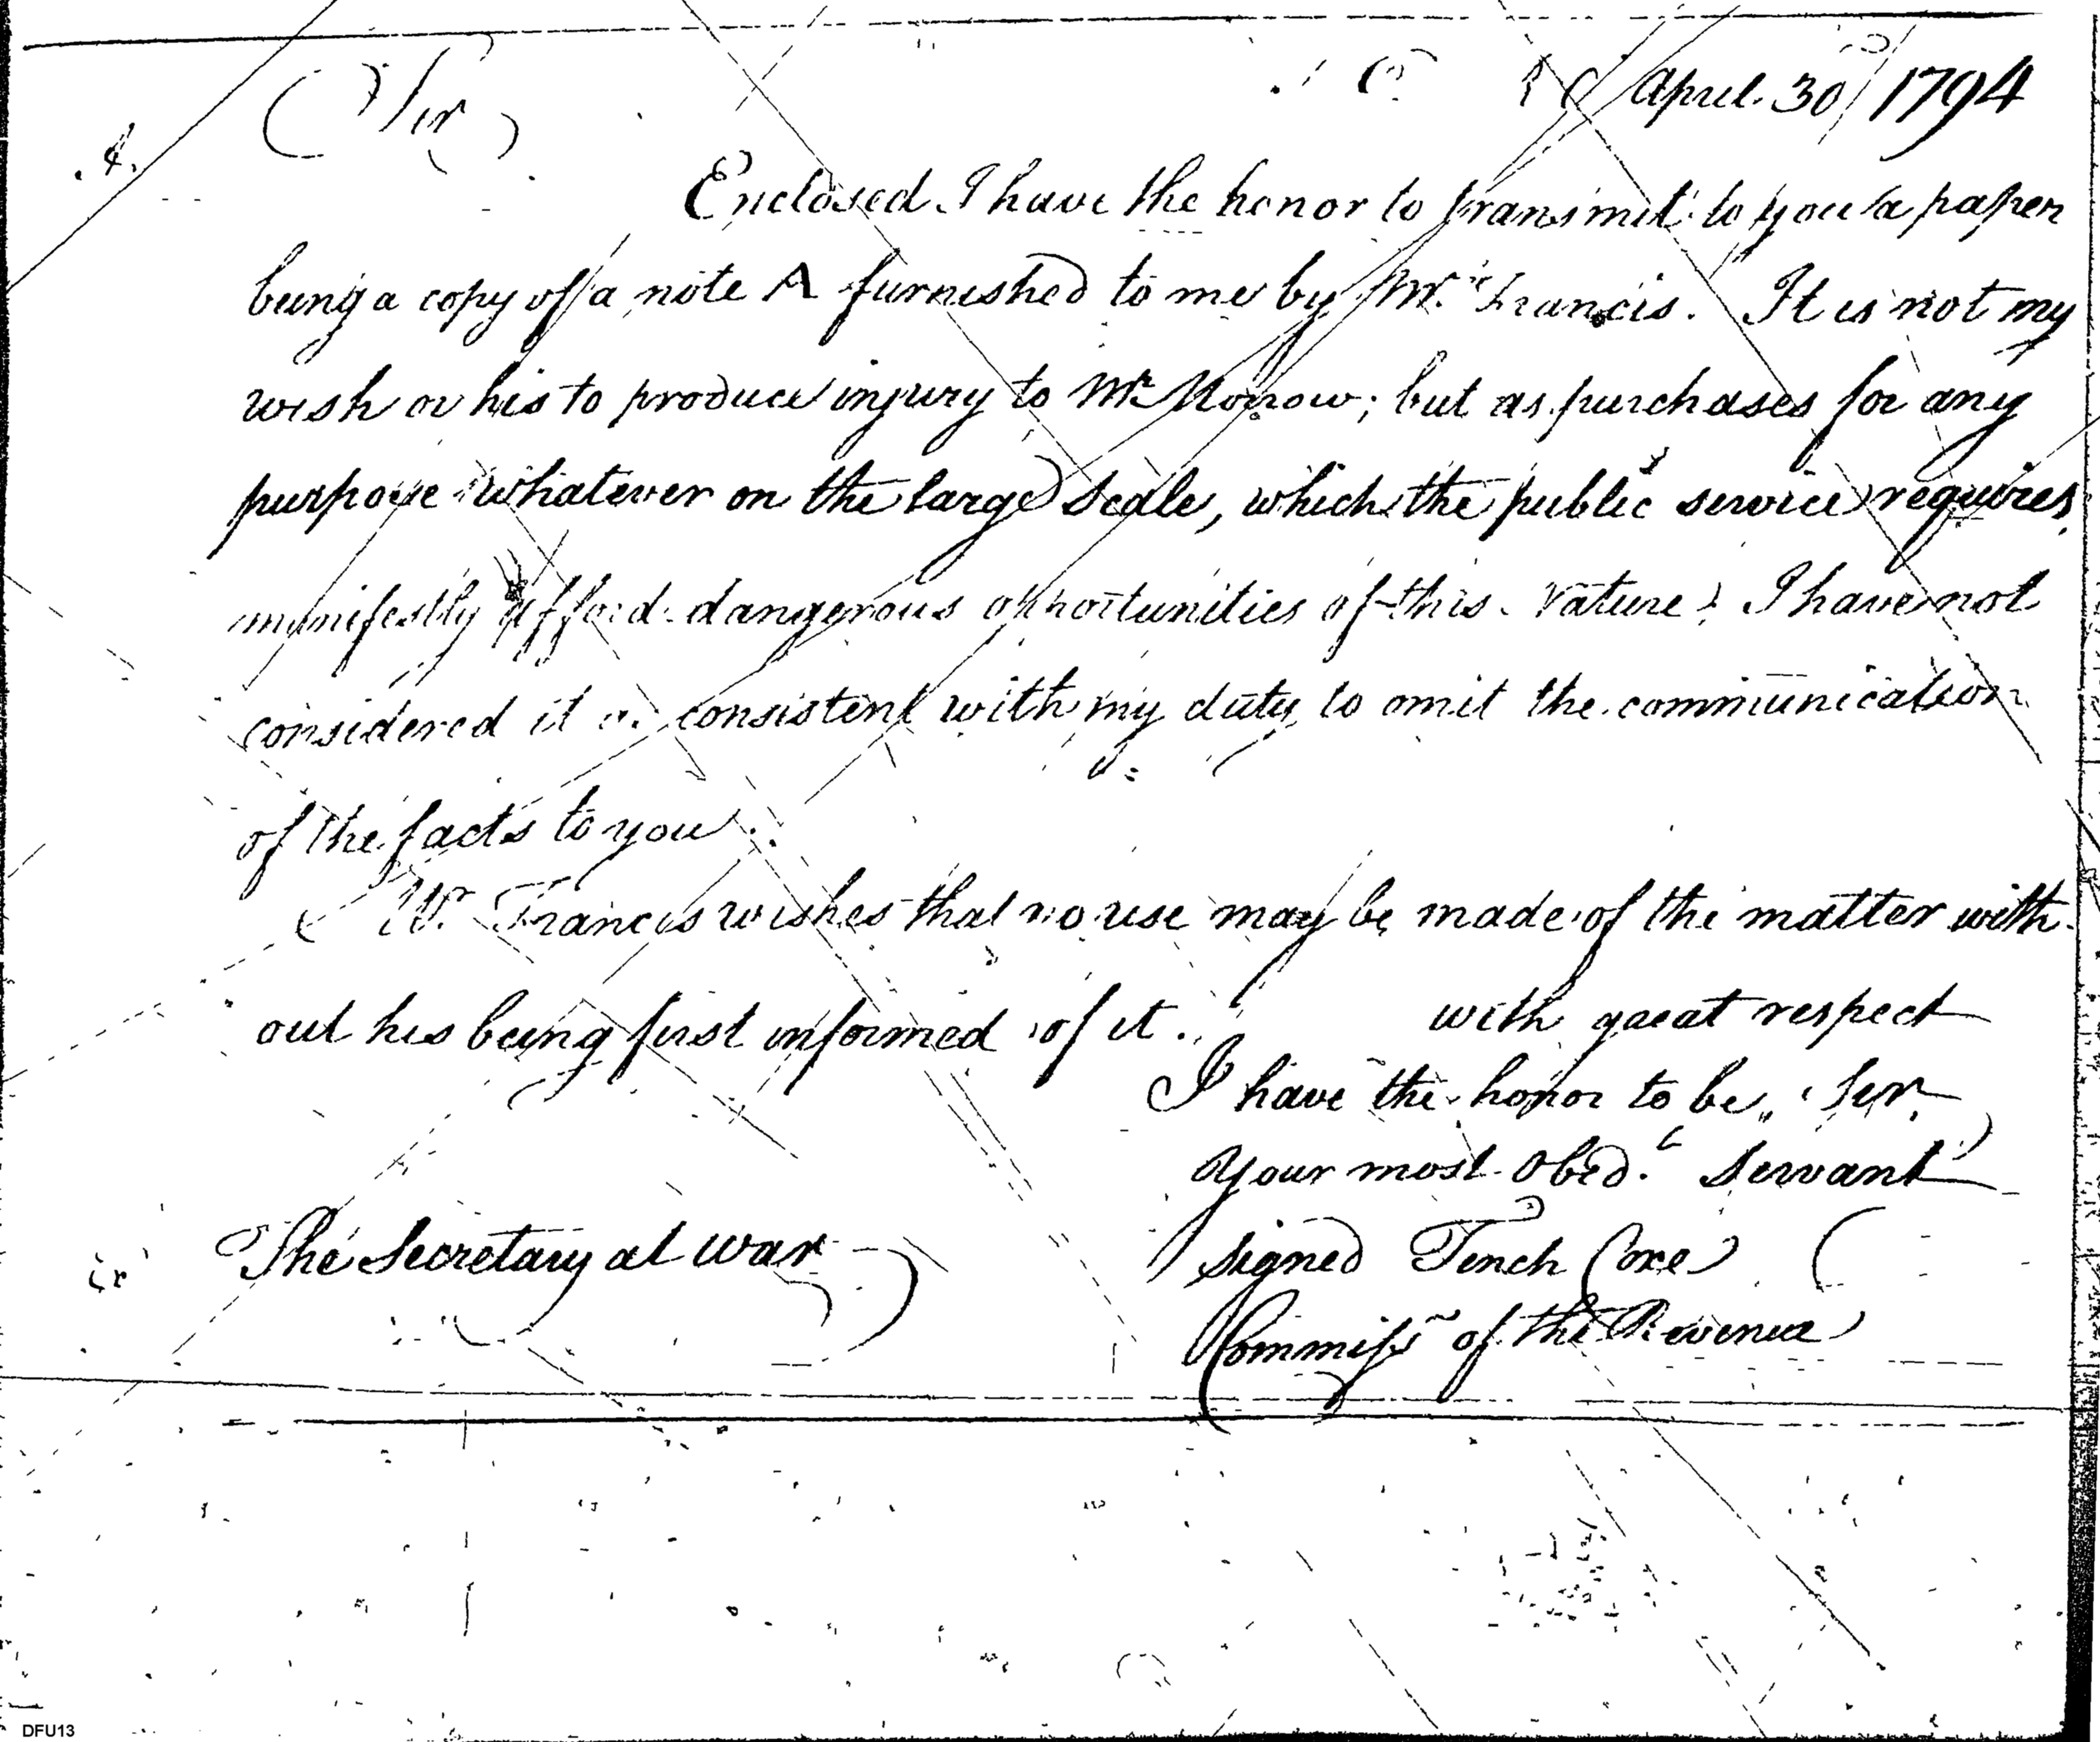 April 30 1794
Sir
Enclosed I have the honor to transmit to you a paper
being a copy of a note A furnished to me by Mr. Francis. It is not my
wish or his to produce injury to Mr Morrow; but as purchases for any
purpose whatever on the large scale, which the public service requires,
manifestly afford dangerous opportunities of this Nature I have not
considered it as consistent with my duty to omit the communication
of the facts to you.
Mr. Francis wishes that no use may be made of the matter with
out his being first informed of it. with great respect
I have the honor to be, Sir
Your most Obedt. Servant
The Secretary at war signed Tench Coxe
Commissr of the Revenue
DFU13